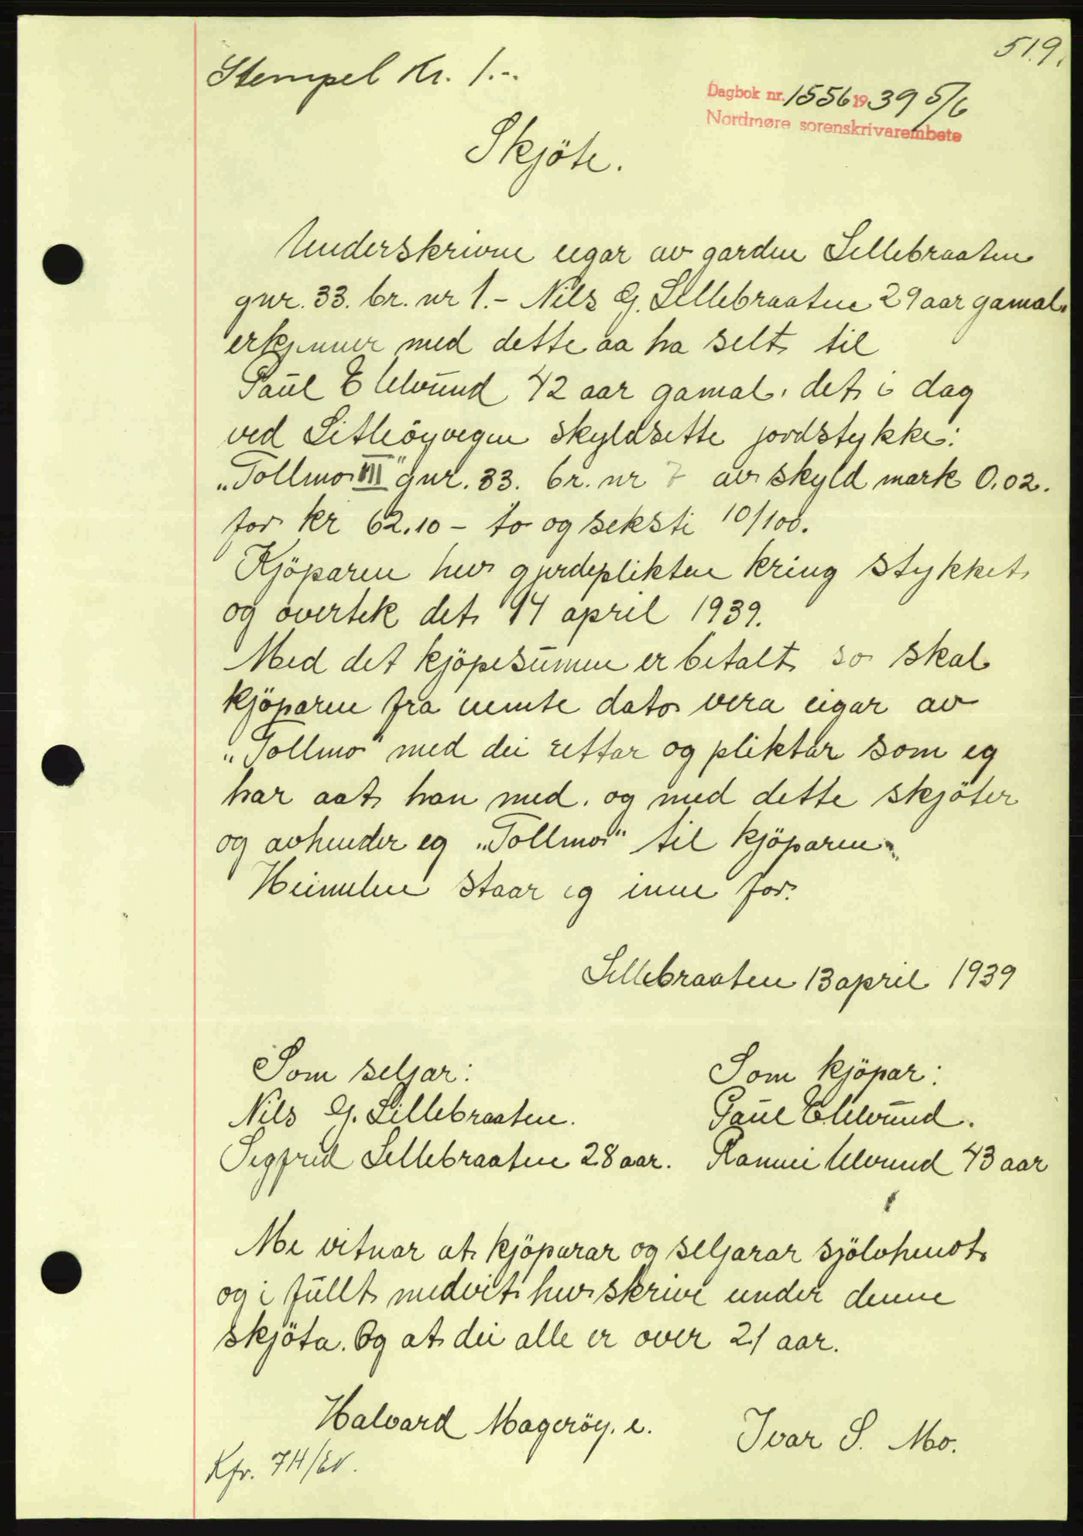 519.
Stempel Kr. 1.-.
Dagbok nr. 1556 1939 5/6
Nordmøre sorenskrivarembete
Skjöte.
Underskrivne eigar av garden Lillebraaten
gnr. 33. br. nr 1.- Nils G. Lillebraaten 29 aar gamal.
erkjenner med dette aa ha selt til
Paul E Ulvund 42 aar gamal. det i dag
ved Litleöyvegen skyldsette jordstykke:
„Tollmo VII" gnr. 33. br. nr 7 av skyld mark 0.02.
for kr 62.10 - to og seksti 10/100.
Kjöparen hev gjerdeplikten kring stykket
og overtek det 14 april 1939.
Med det kjöpesummen er betalt so skal
kjöparen fra nemte dato vera eigar av
„Tollmo" med dei rettar og pliktar som eg
har aat han med. og med dette skjöter
og avhender eg „Tollmo" til kjöparen.
Heimelen staar eg inne for.
Lillebraaten 13 april 1939
Som seljar:
Nils G. Lillebraaten.
Sigfrid Lillebraaten 28 aar.
Som kjöpar:
Paul E. Ulvund.
Ulvund 43 aar
Me vitnar at kjöparar og seljarar sjölvhendt
og i fullt medvit hev skrive under denne
skjöta. Og at dei alle er over 21 aar.
Halvard Mageröy. e.
Ivar S. Mo.
Kfr. 74/